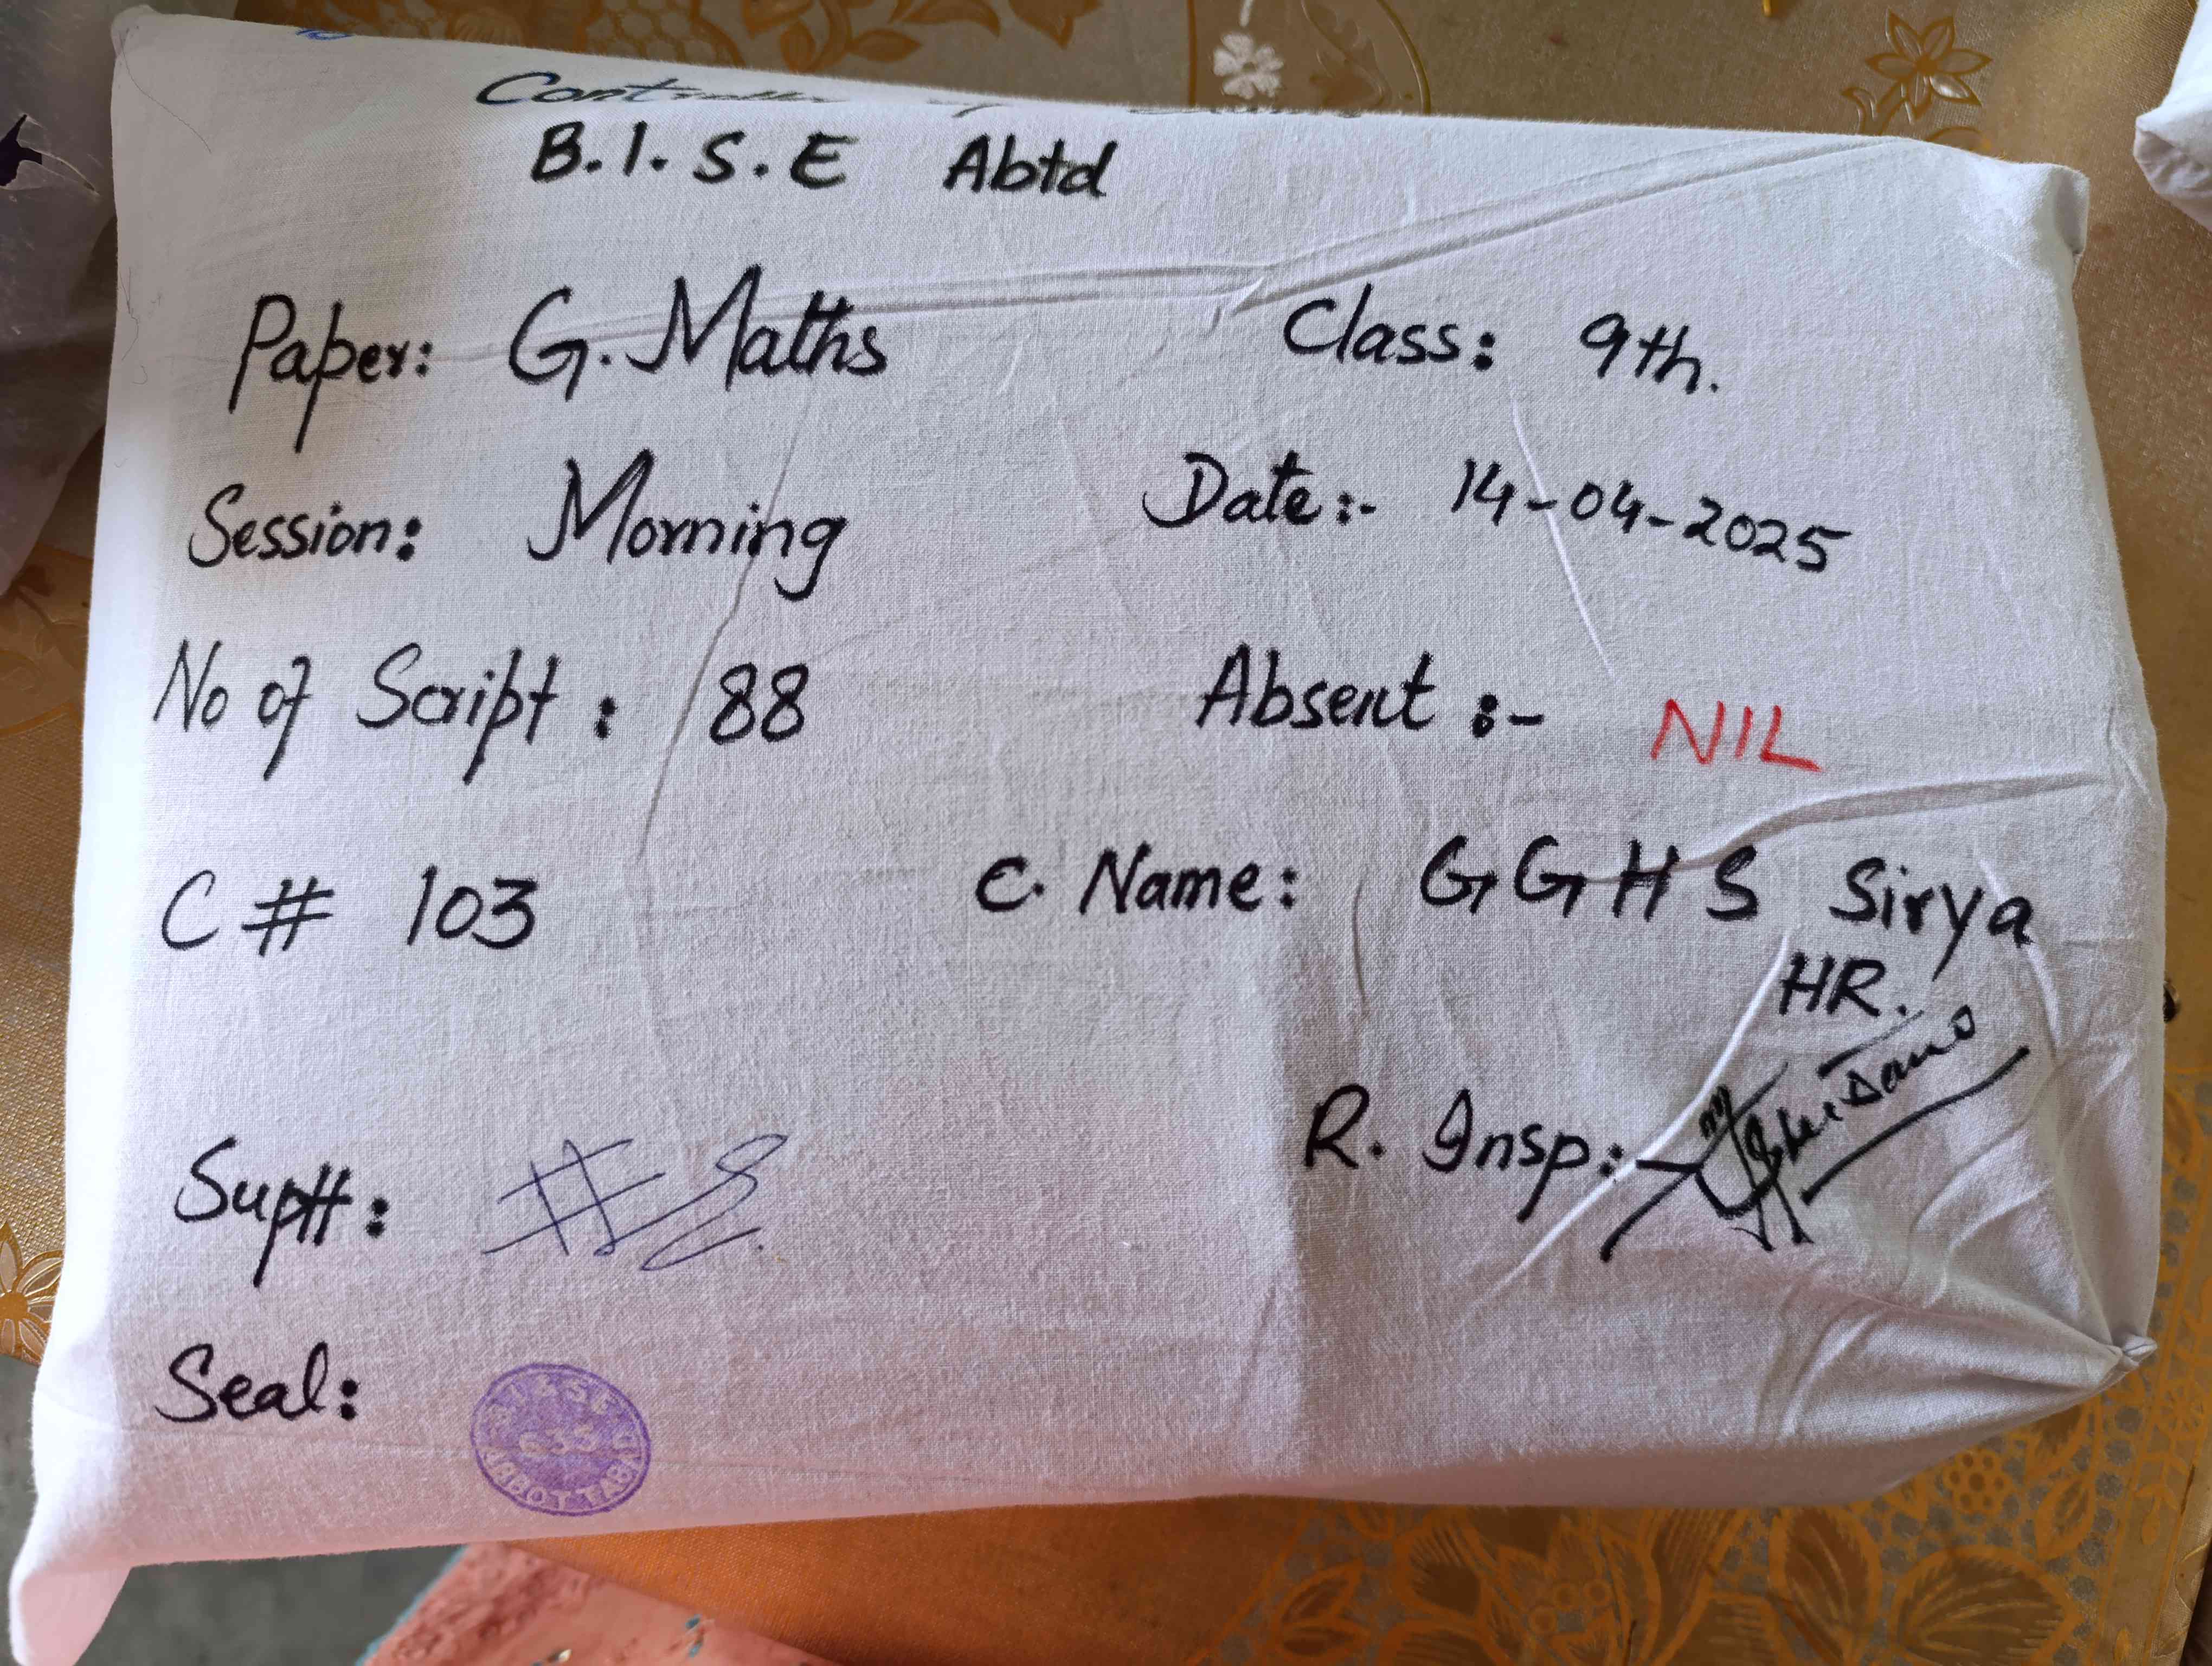 B.I.S.E Abtd
Paper: G. Maths Class: 9th.
Session: Morning Date:- 14-04-2025
No of Script: 88 Absent:- NIL
C # 103 C. Name: GGHS Sirya
HR.
Suptt: R. Insp:
Seal: